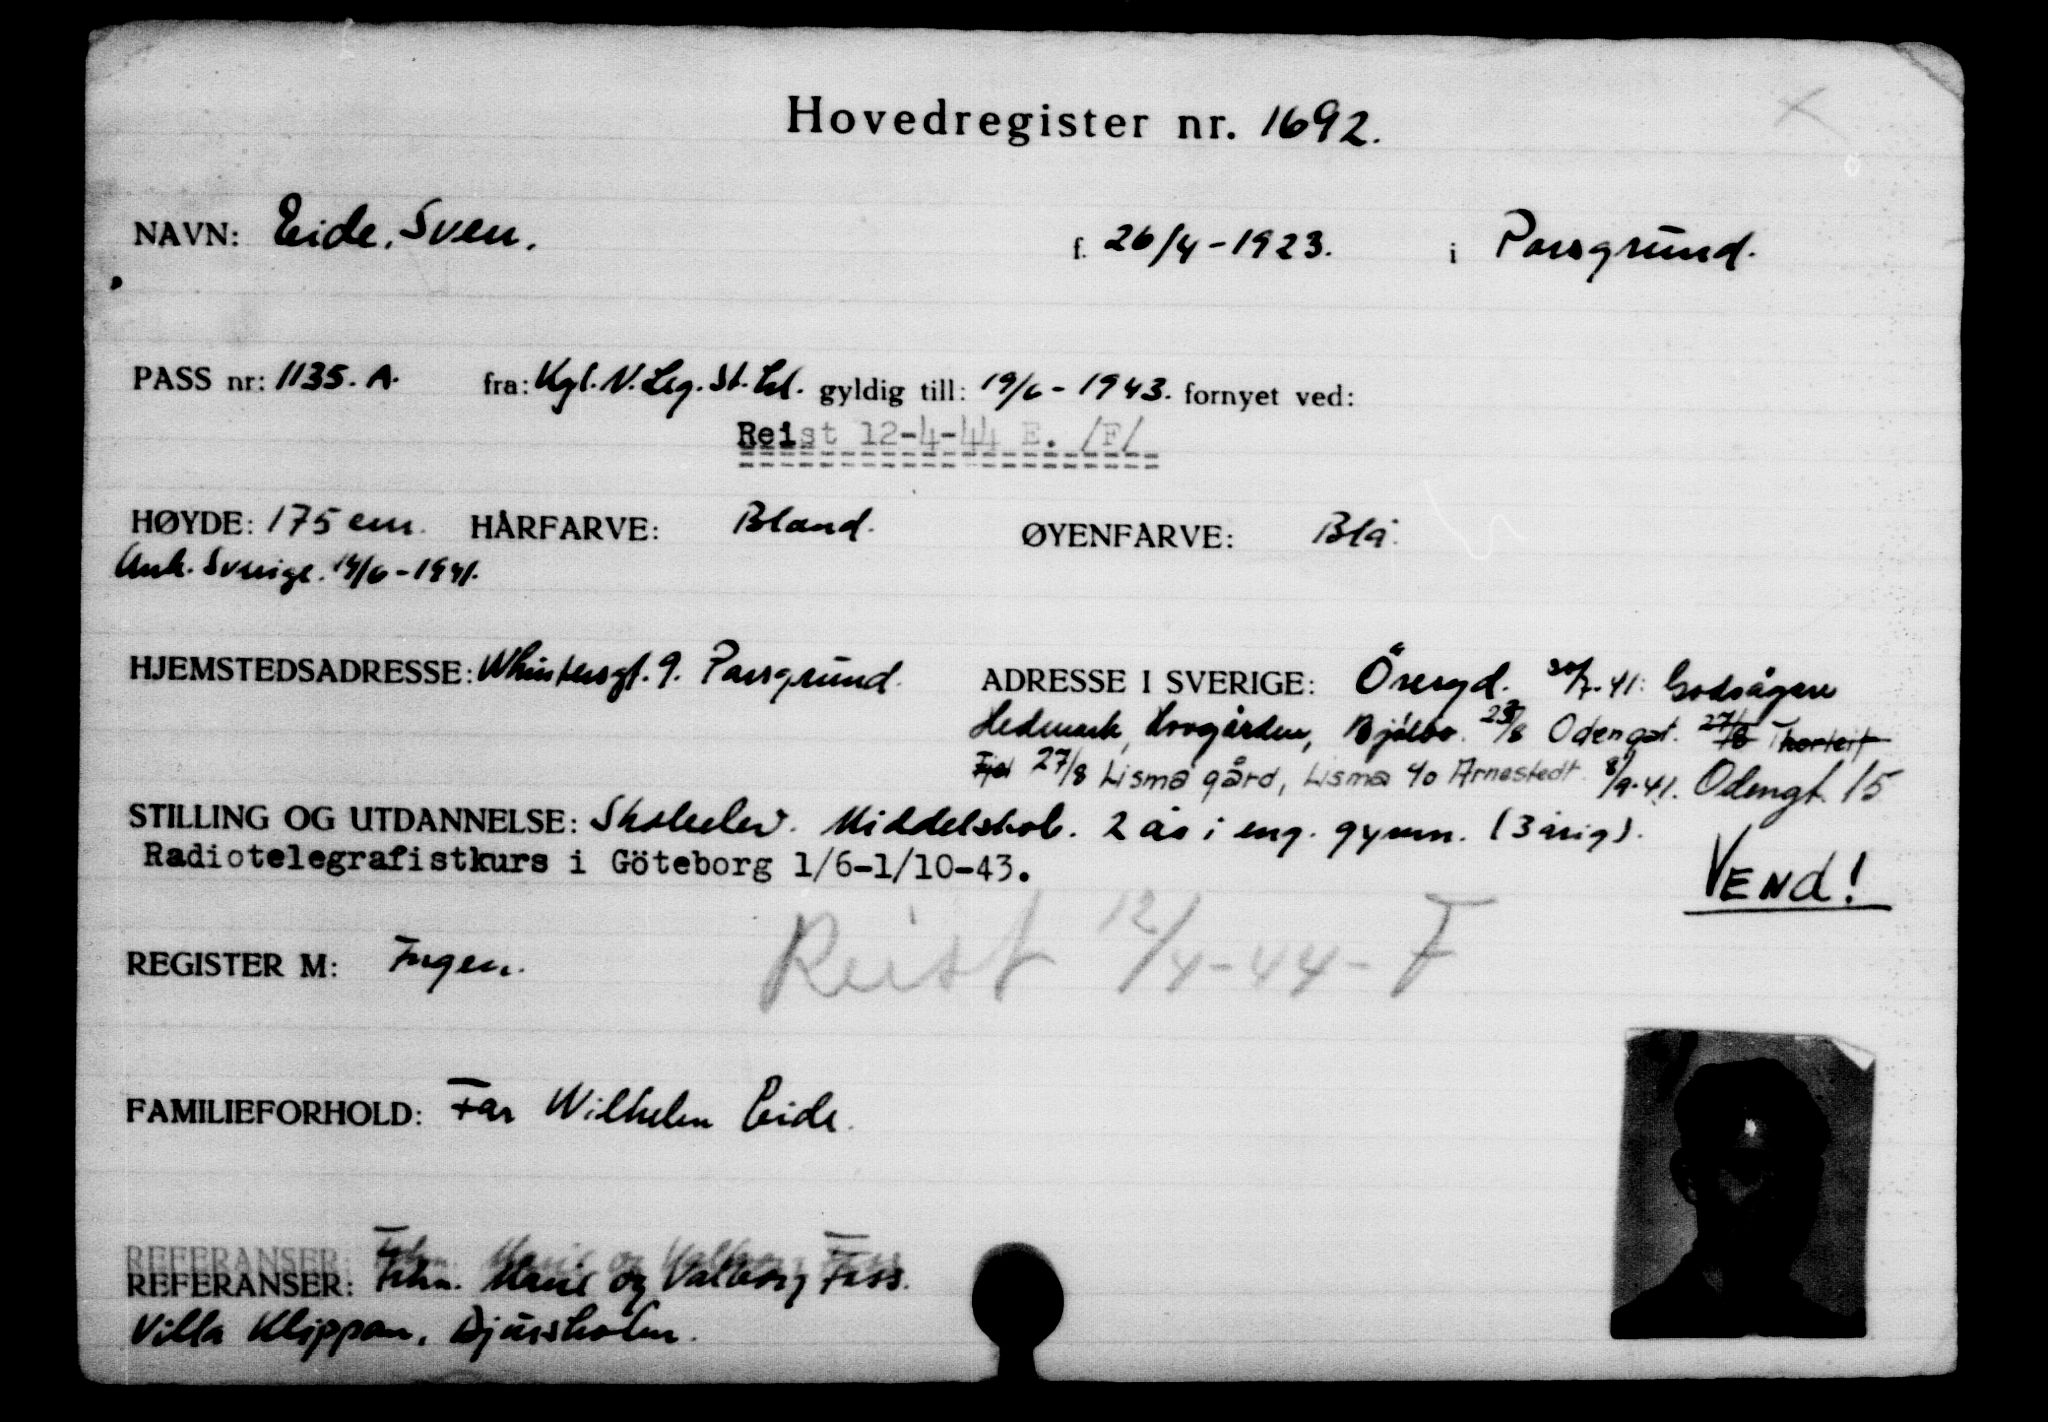 Hovedregister nr. 1692.
NAVN: Eide, Sven. f. 26/4-1923. i Porsgrund.
PASS nr: 1135. A. fra: Kgl. N. Leg. St. hl. gyldig till: 19/6-1943. fornyet ved:
Reist 12-4-44 E. /F/
HØYDE: 175 cm. HÅRFARVE: Blond. ØYENFARVE: Blå.
Ank. Sverige. 14/6-1941.
HJEMSTEDSADRESSE: 9. Porsgrund. ADRESSE I SVERIGE: Öreryd. 30/7-41: Godsägare
Hedmark, Hovgården, Bjälbo. 23/8 Odengat. 27/8 Thorleif
Fjel 27/8 Lisma gård, Lisma c/o Arnestedt. 8/9-41. Odengt. 15
STILLING OG UTDANNELSE: Skoleelev. Middelskole. 2 år i eng. gymn. (3 årig).
Radiotelegrafistkurs i Göteborg 1/6-1/10-43.
VENd!
REGISTER M: Ingen.
Reist 12/4-44- F
FAMILIEFORHOLD: Far Wilhelm Eide.
REFERANSER: Frkn. Marie og Valborg Foss.
REFERANSER: Frkn. Marie og Valborg Foss.
Villa Klippan, Djursholm.